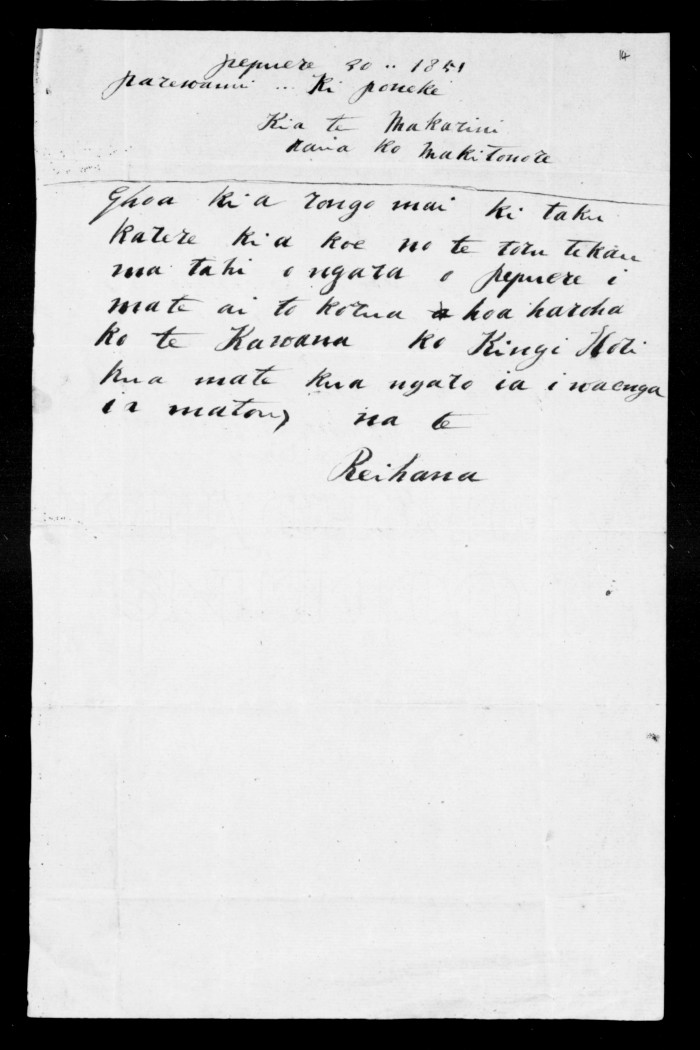 14
pepuere 30 .. 1851
parewanui ... Ki poneke
Kia te Makarini
raua ko Makitonore
Ehoa ki a rongo mai ki taku
karere ki a koe no te toru tekau
ma tahi o ngara o pepuere i
mate ai to korua hoa haroha
ko te Kawana ko Kingi Hori
kua mate kua ngaro ia i waenga
i a matou, na te
Reihana